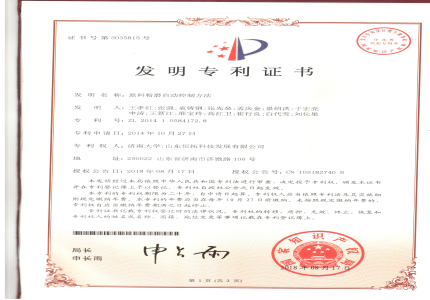 证书号第3035815号
发明专利证书
发 明 名 称：原料粉磨自动控制方法
发 明 人：王孝红;张强;袁铸钢;孟庆金;景绍洪;于宏亮
申涛;王新江;邢宝玲;高红卫;崔行良;白代雪;刘化果
专 利 号：ZL 2014 1 0584172.8
专利申请日：2014年10月27日
专 利 权 人：济南大学;山东恒拓科技发展有限公司
地 址：250022 山东省济南市济微路106号
授权公告日：2018年08月17日 授权公告号：CN 105182740 B
本发明经过本局依照中华人民共和国专利法进行审查，决定授予专利权，颁发本证书
并在专利登记簿上予以登记。专利权自授权公告之日起生效。
本专利的专利权期限为二十年，自申请日起算。专利权人应当依照专利法及其实施细
则规定缴纳年费。本专利的年费应当在每年10月27日前缴纳。未按照规定缴纳年费的，
专利权自应当缴纳年费期满之日起终止。
专利证书记载专利权登记时的法律状况。专利权的转移、质押、无效、终止、恢复和
专利权人的姓名或名称、国籍、地址变更等事项记载在专利登记簿上。
局长
申长雨
申长雨
国家知识产权局
2018年08月17日
第 1 页 (共 2 页)